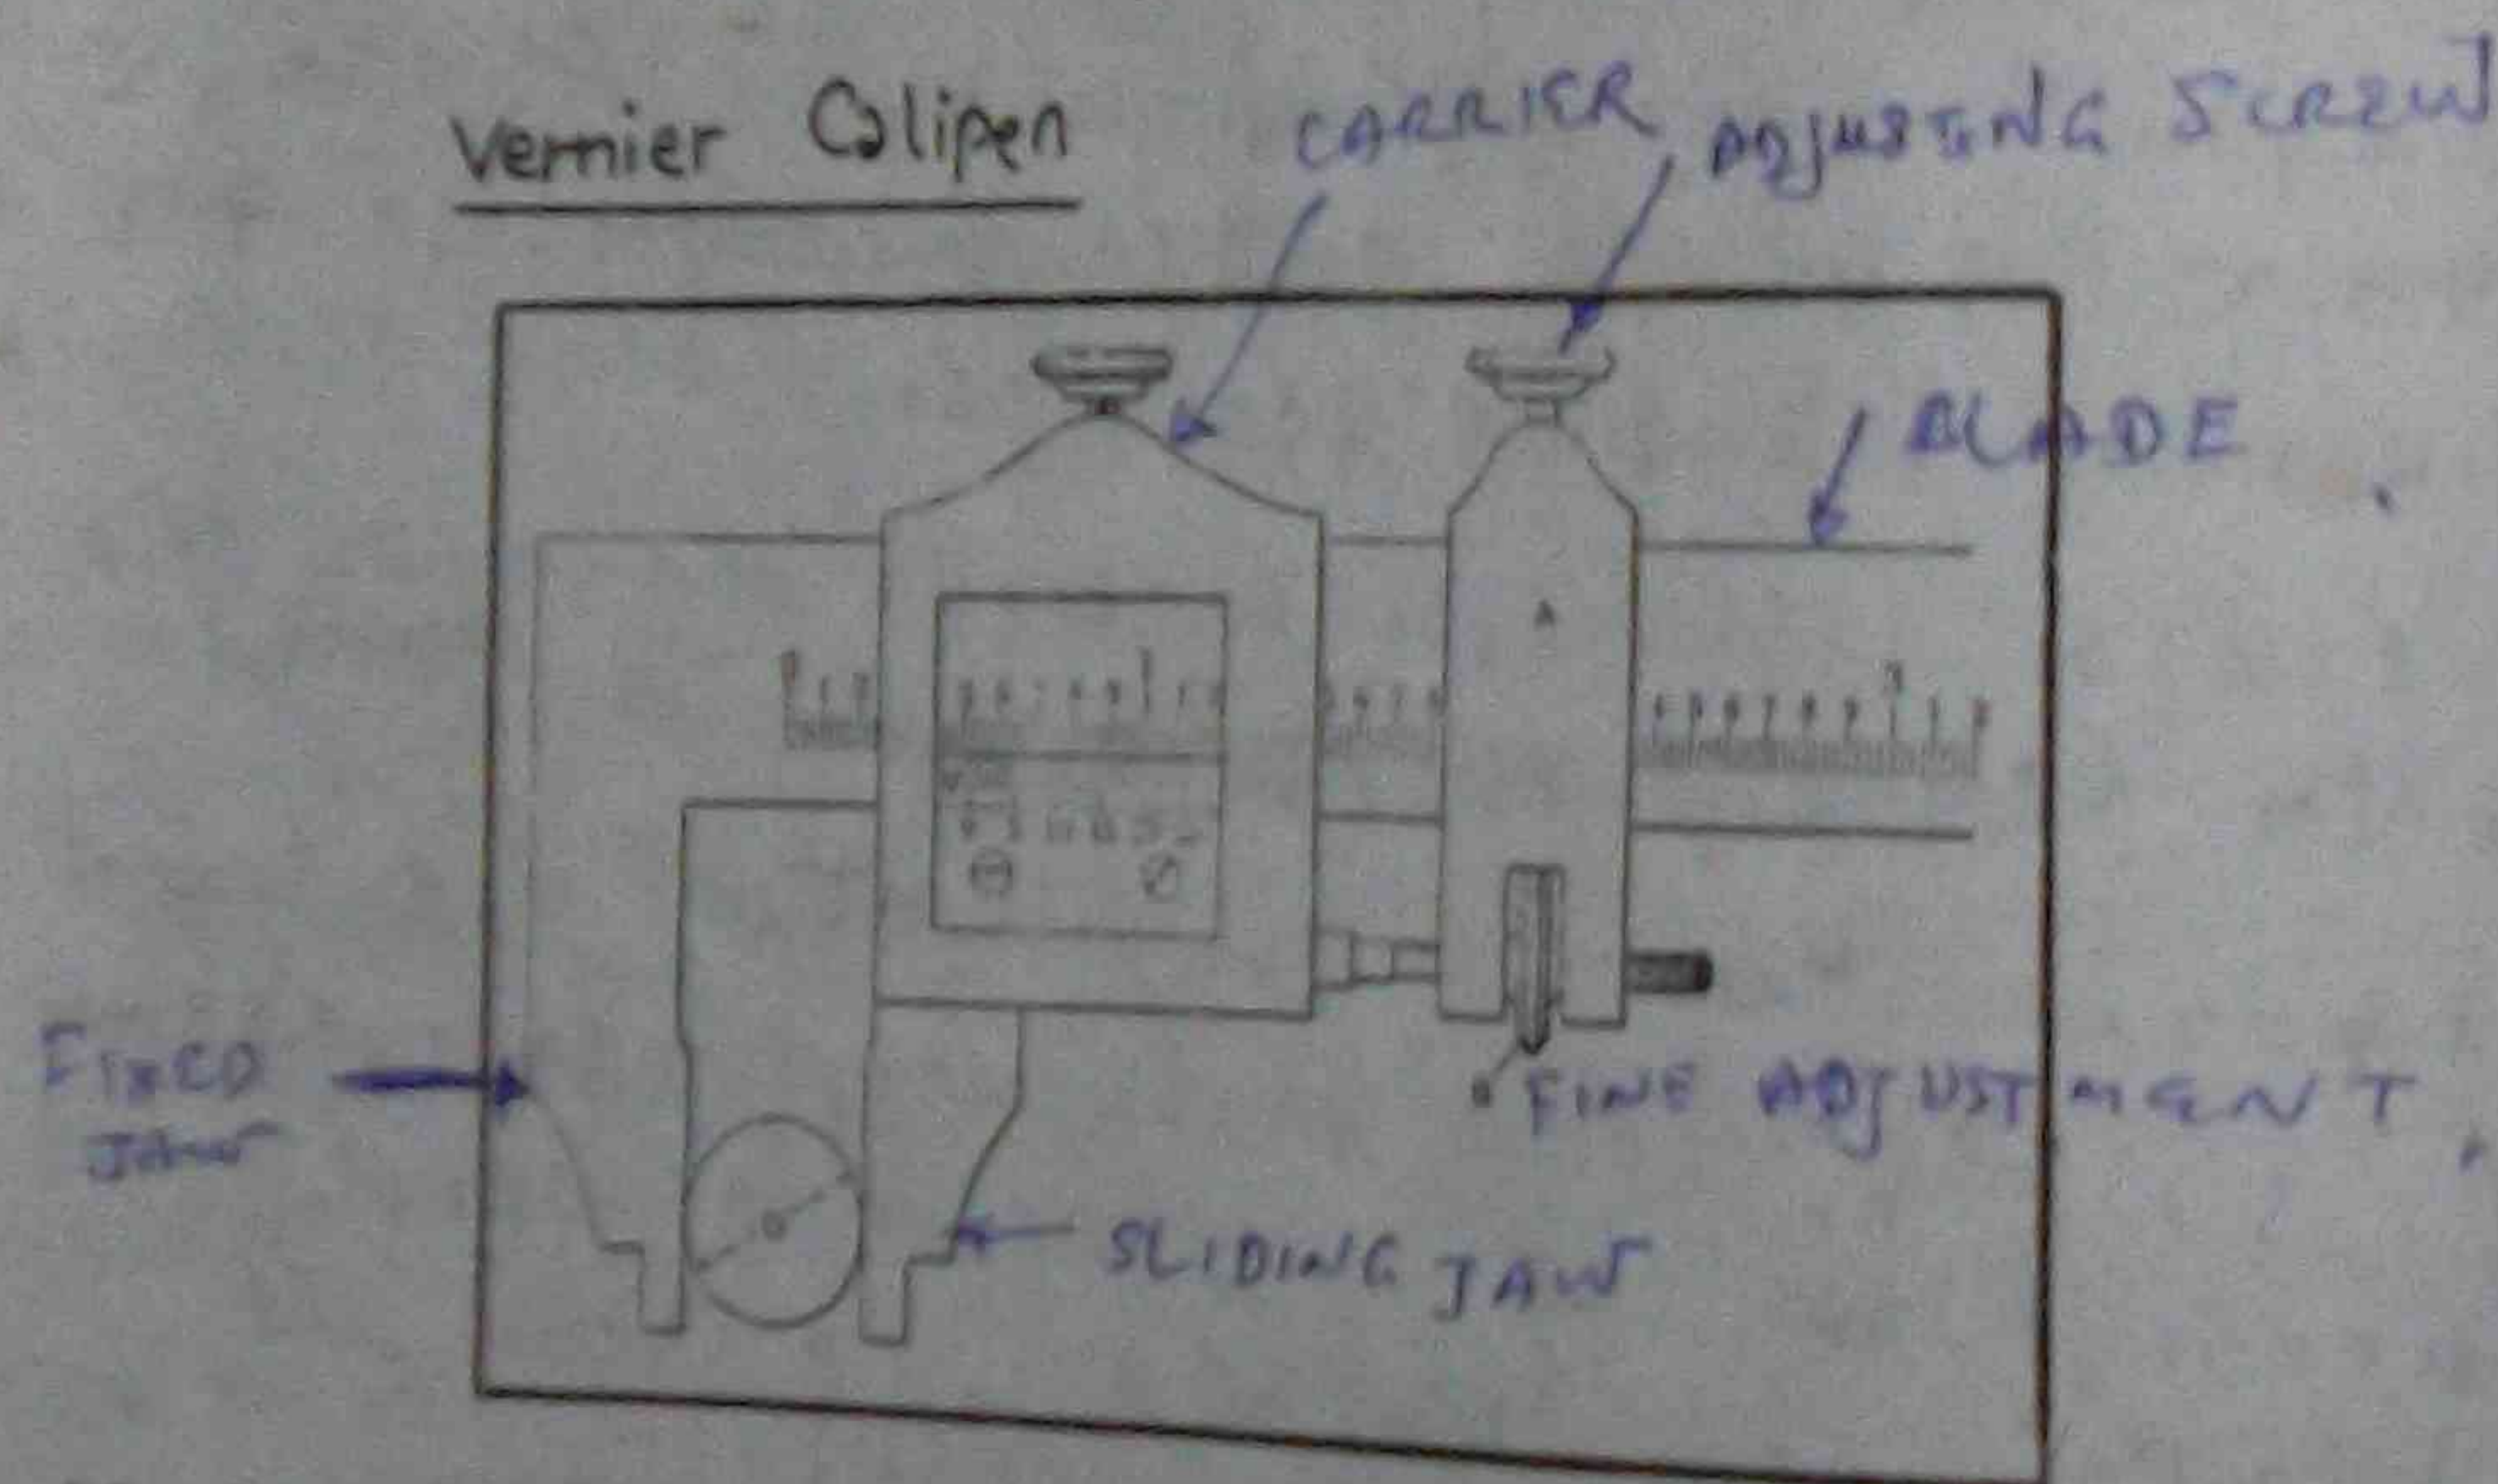 Vernier Calipen
CARRIER
ADJUSTING SCREW
BLADE
A
FIXED
JAW
FINE ADJUSTMENT
SLIDING JAW